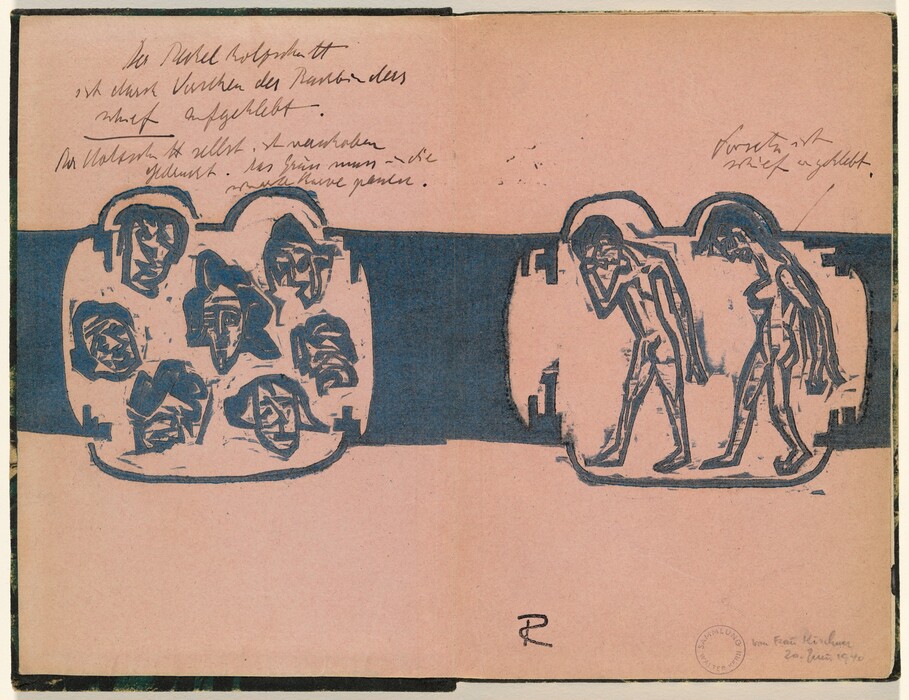 Der Deckel Holzschnitt
ist durch Versehen des Buchbinders
schief aufgeklebt.
Der Holzschnitt selbst ist verschoben
gedruckt. das Grün muss in die
Kurve passen.
Vorsatz ist
schief aufgeklebt.
SAMMLUNG
von Frau Kirchner
20. Juni 1940